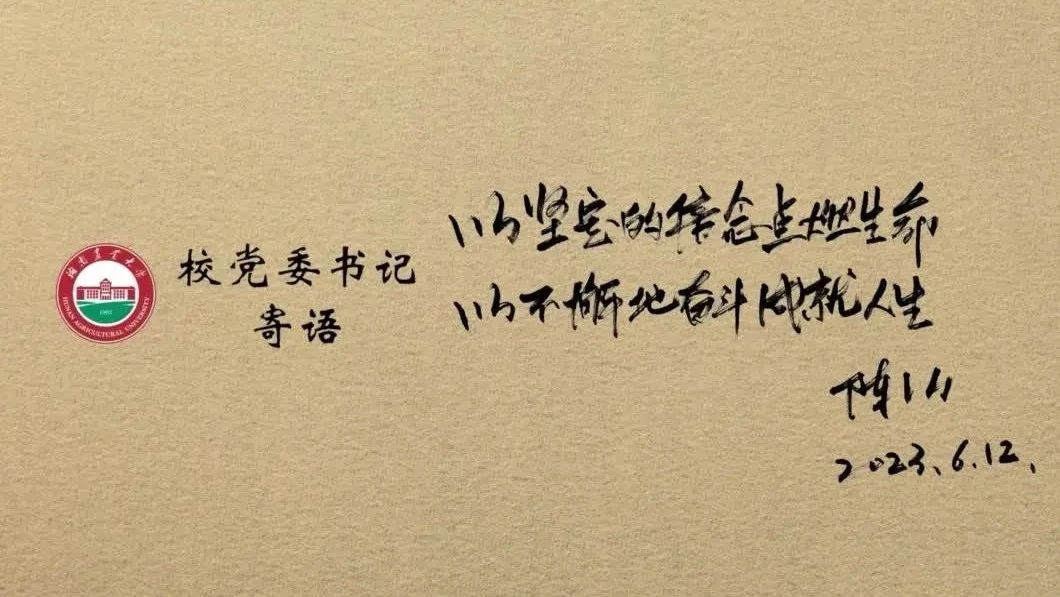 湖南农业大学
HUNAN AGRICULTURAL UNIVERSITY
校党委书记
寄语
以坚定的信念点燃生命
以不懈地奋斗成就人生
陈弘
2023.6.12.